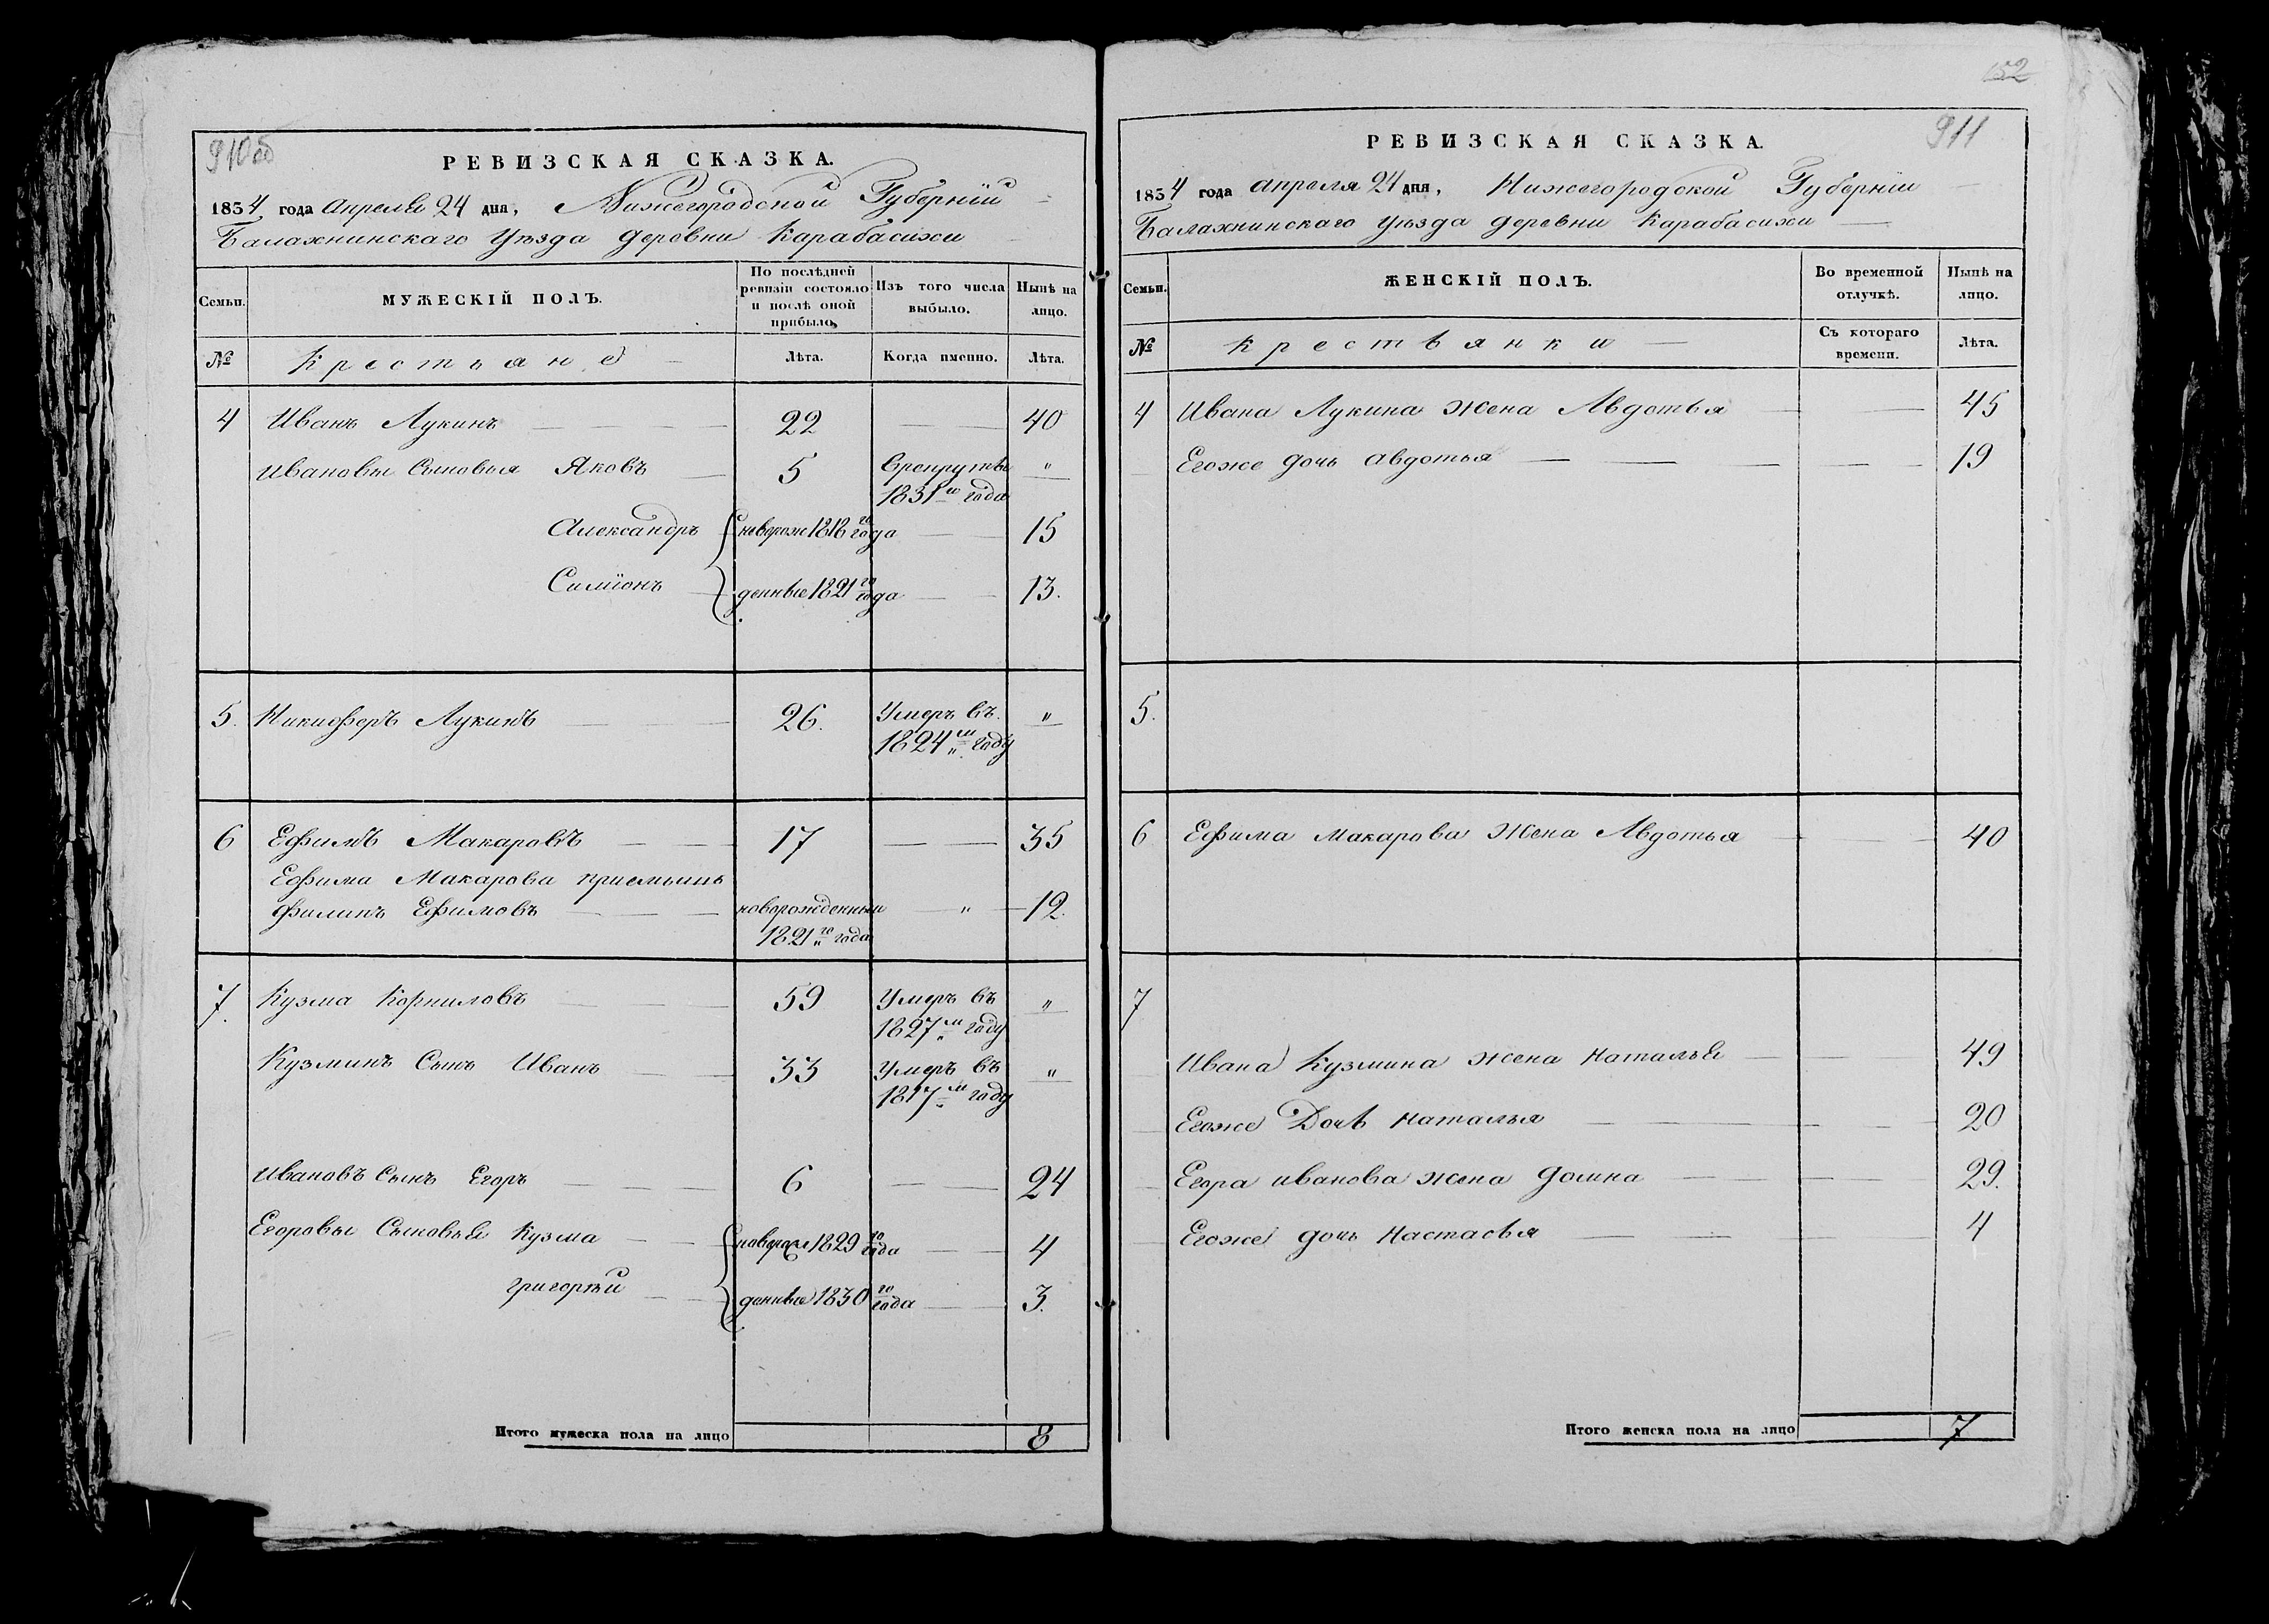 910об
РЕВИЗСКАЯ СКАЗКА.
1834 года Апреля 24 дня, Нижегородской Губерніи
Балахнинскаго Уѣзда деровни Карабасихи
Семьи.
МУЖЕСКІЙ ПОЛЪ.
По послѣдней ревизіи состояло и послѣ оной прибыло,
Изъ того числа выбыло.
Нынѣ на лицо.
№
Крестьяне
Лѣта.
Когда именно.
Лѣта.
4 Иванъ Лукинъ 22 40
Ивановы Сыновья Яковъ 5 "
1831 го года
Александръ новорож 1818 го года 15
Симіонъ денные 1821 го года 13.
5. Никифоръ Лукинъ 26. Умеръ въ "
1824 м году
6 Ефимъ Макаровъ 17 35
Ефима Макарова приемышъ
Филипъ Ефимовъ новорожденный " 12.
1821 го года
7. Кузма Корниловъ 59 Умеръ въ "
1827 м году
Кузминъ Сынъ Иванъ 33 Умеръ въ "
1817 м году
Ивановъ Сынъ Егоръ 6 24
Егоровы Сыновья Кузма новорож 1829 го года 4
григорей денные 1830 го года 3.
Итого мужеска пола на лицо 8
152
911
РЕВИЗСКАЯ СКАЗКА.
1834 года апреля 24 дня, Нижегородской Губерніи
Балахнинскаго уѣзда деревни Карабасихи
Семьи.
ЖЕНСКІЙ ПОЛЪ.
Во временной отлучкѣ.
Нынѣ на лицо.
№
крестьянки
Съ котораго времени.
Лѣта.
4 Ивана Лукина Жена Авдотья 45
Егоже дочь авдотья 19
5.
6 Ефима Макарова Жена Авдотья 40
7
Ивана Кузмина жена наталья 49
Егоже Дочь наталья 20
Егора иванова жена домна 29.
Егоже дочь настасья 4
Итого женска пола на лицо 7